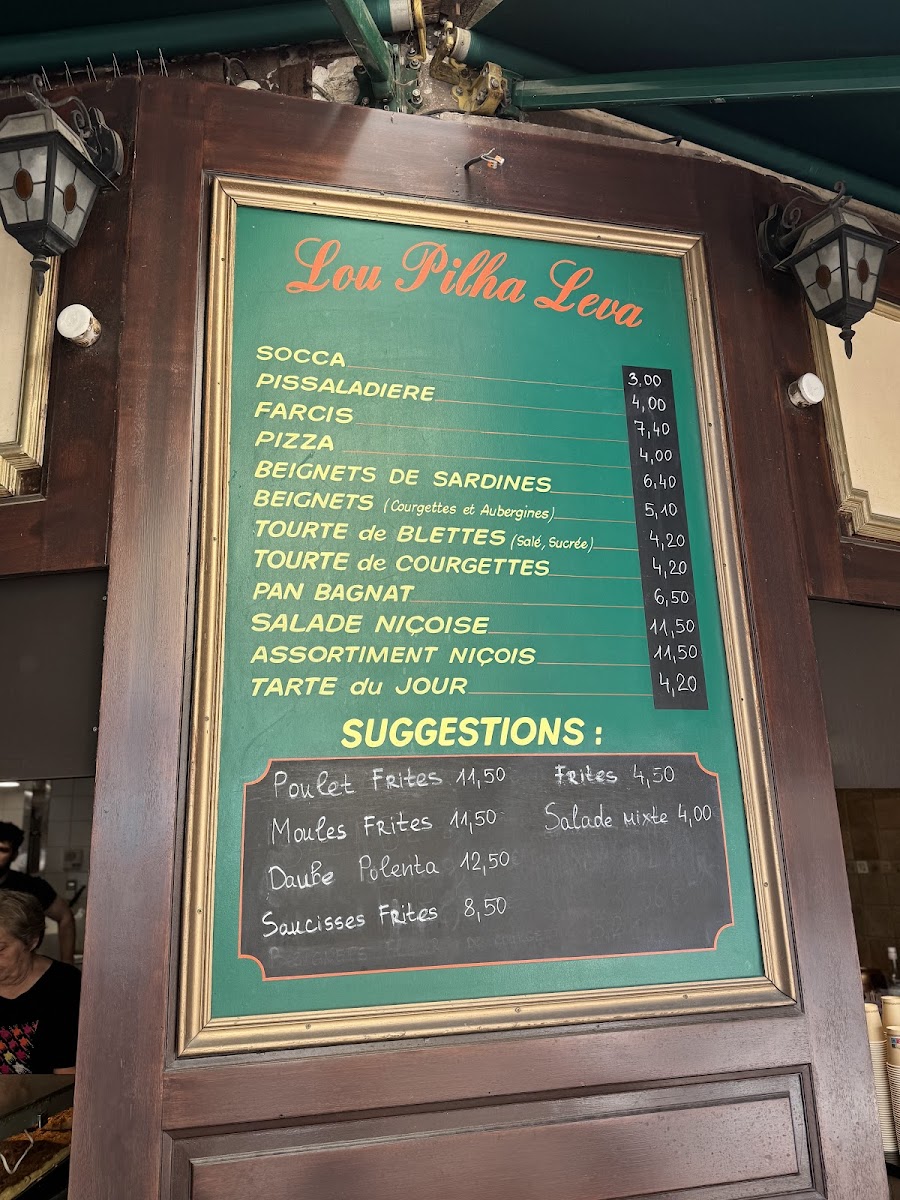 Lou Pilha Leva
SOCCA 3,00
PISSALADIERE 4,00
FARCIS 7,40
PIZZA 4,00
BEIGNETS DE SARDINES 6,40
BEIGNETS (Courgettes et Aubergines) 5,10
TOURTE de BLETTES (Salé, Sucrée) 4,20
TOURTE de COURGETTES 4,20
PAN BAGNAT 6,50
SALADE NIÇOISE 11,50
ASSORTIMENT NIÇOIS 11,50
TARTE du JOUR 4,20
SUGGESTIONS :
Poulet Frites 11,50
Moules Frites 11,50
Daube Polenta 12,50
Saucisses Frites 8,50
Frites 4,50
Salade mixte 4,00